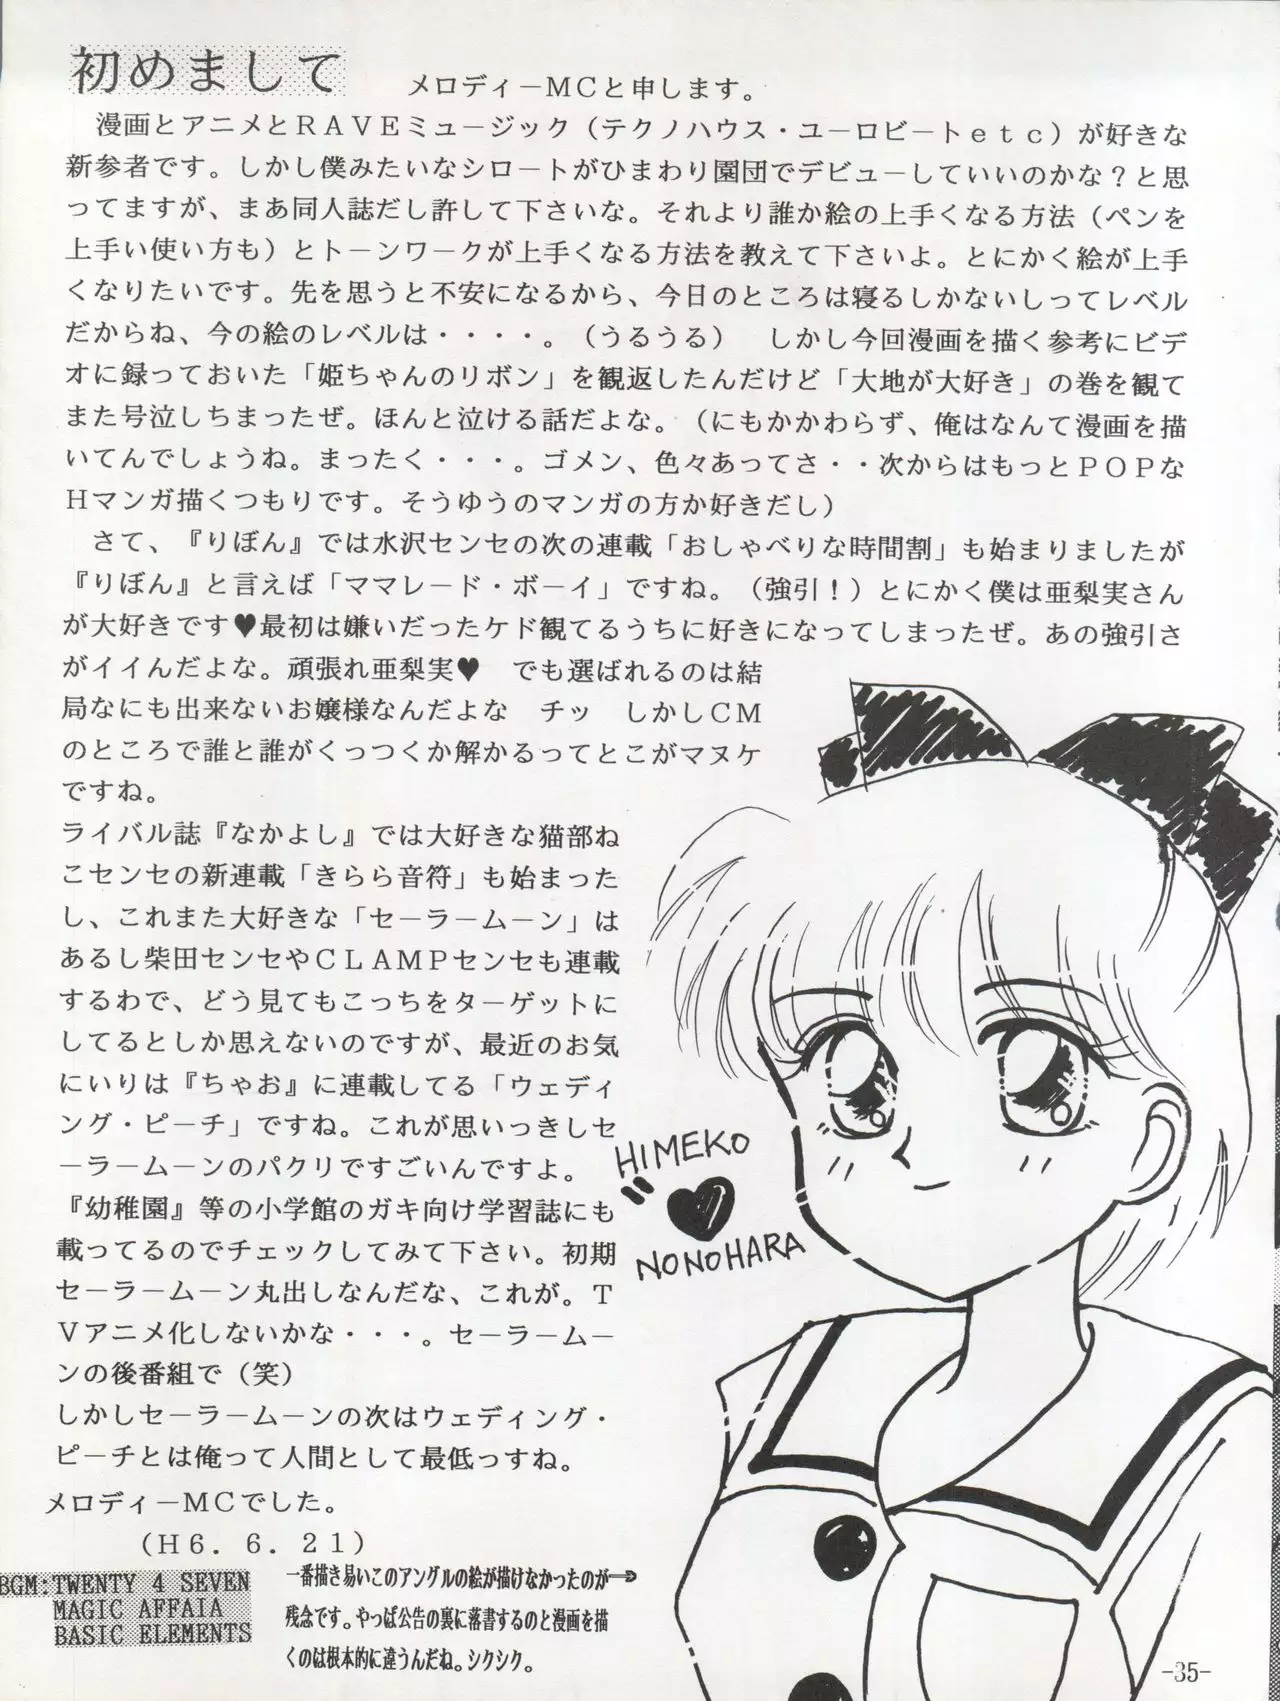 初めまして
メロディーMCと申します。
漫画とアニメとRAVEミュージック（テクノハウス・ユーロビートetc）が好きな
新参者です。しかし僕みたいなシロートがひまわり園団でデビューしていいのかな？と思
ってますが、まあ同人誌だし許して下さいな。それより誰か絵の上手くなる方法（ペンを
上手い使い方も）とトーンワークが上手くなる方法を教えて下さいよ。とにかく絵が上手
くなりたいです。先を思うと不安になるから、今日のところは寝るしかないしってレベル
だからね、今の絵のレベルは・・・・。（うるうる）　しかし今回漫画を描く参考にビデ
オに録っておいた「姫ちゃんのリボン」を観返したんだけど「大地が大好き」の巻を観て
また号泣しちまったぜ。ほんと泣ける話だよな。（にもかかわらず、俺はなんて漫画を描
いてんでしょうね。まったく・・・。ゴメン、色々あってさ・・次からはもっとPOPな
Hマンガ描くつもりです。そうゆうのマンガの方か好きだし）
さて、『りぼん』では水沢センセの次の連載「おしゃべりな時間割」も始まりましたが
『りぼん』と言えば「ママレード・ボーイ」ですね。（強引！）とにかく僕は亜梨実さん
が大好きです♥最初は嫌いだったケド観てるうちに好きになってしまったぜ。あの強引さ
がイイんだよな。頑張れ亜梨実♥　でも選ばれるのは結
局なにも出来ないお嬢様なんだよな　チッ　しかしCM
のところで誰と誰がくっつくか解かるってとこがマヌケ
ですね。
ライバル誌『なかよし』では大好きな猫部ね
こセンセの新連載「きらら音符」も始まった
し、これまた大好きな「セーラームーン」は
あるし柴田センセやCLAMPセンセも連載
するわで、どう見てもこっちをターゲットに
してるとしか思えないのですが、最近のお気
にいりは『ちゃお』に連載してる「ウェディ
ング・ピーチ」ですね。これが思いっきしセ
ーラームーンのパクリですごいんですよ。
『幼稚園』等の小学館のガキ向け学習誌にも
載ってるのでチェックしてみて下さい。初期
セーラームーン丸出しなんだな、これが。T
Vアニメ化しないかな・・・。セーラームー
ンの後番組で（笑）
しかしセーラームーンの次はウェディング・
ピーチとは俺って人間として最低っすね。
メロディーMCでした。
（H6．6．21）
HIMEKO
NONOHARA
BGM:TWENTY 4 SEVEN
MAGIC AFFAIA
BASIC ELEMENTS
一番描き易いこのアングルの絵が描けなかったのが⇒
残念です。やっぱ公告の裏に落書するのと漫画を描
くのは根本的に違うんだね。シクシク。
-35-